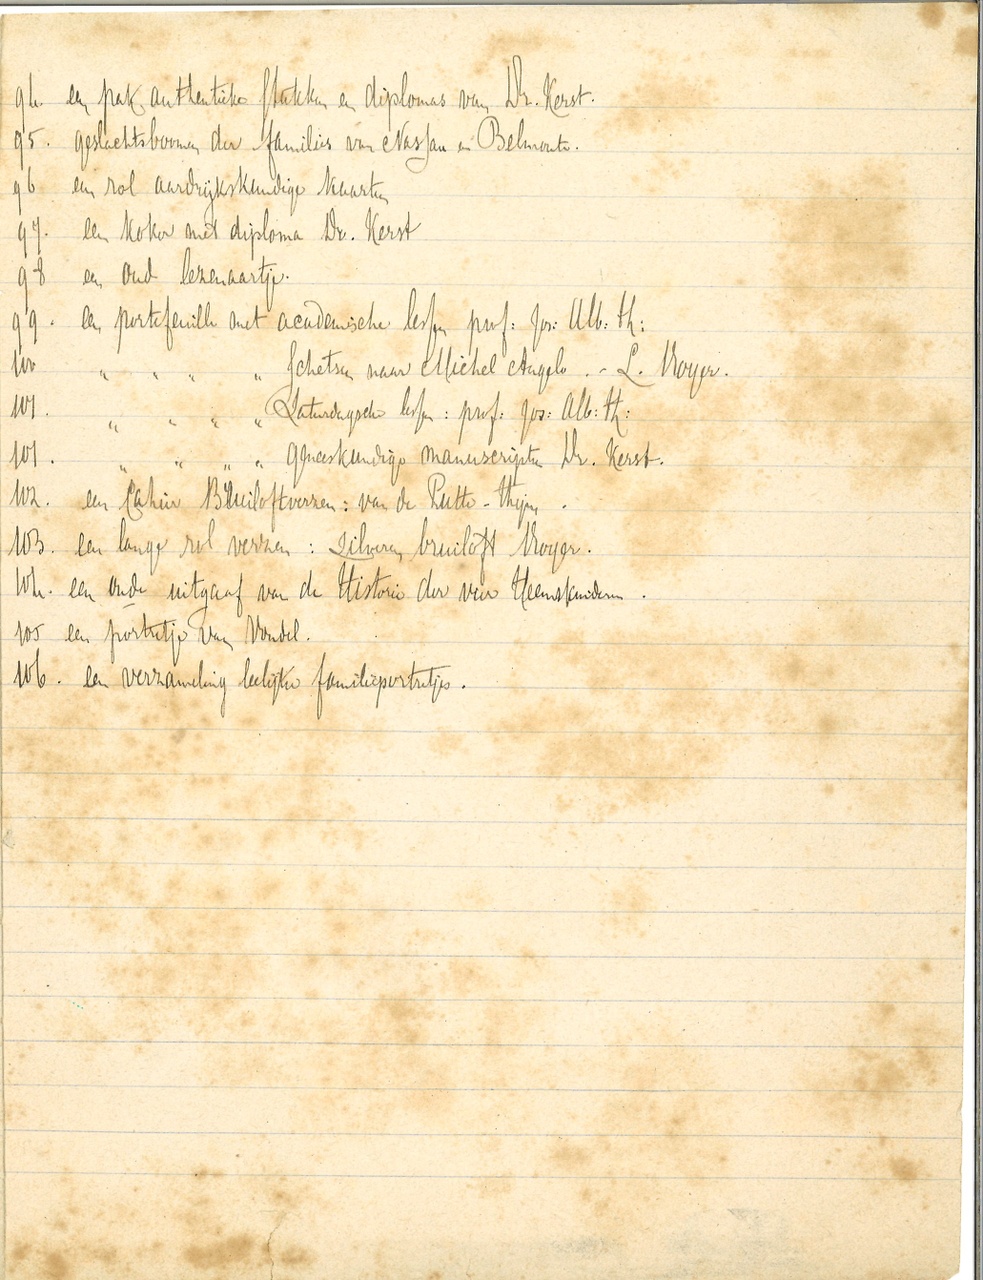 94. een pak authentieke stukken en diplomas van Dr. Kerst.
95. geslachtsboomen der families van Nassau en Belmonte.
96 een rol aardrijkskundige kaarten
97. een koker met diploma Dr. Kerst
98 een oud lezenaartje.
99. een portefeuille met academische lessen prof: Jos: Alb: Th:
100 " " " " Schetsen naar Michel Angelo . - L. Royer.
101. " " " " Saturdagsche lessen : prof: Jos: Alb: Th:
101. " " " " geneeskundige manuscripten Dr. Kerst.
102. een Cahier Bruiloftverzen: van de Putte - Thijm .
103. een lange rol verzen : zilveren bruiloft Royer.
104. een oude uitgaaf van de Historie der vier Heemskinderen .
105 een portretje van Vondel.
106. een verzameling leelijke familieportretjes.